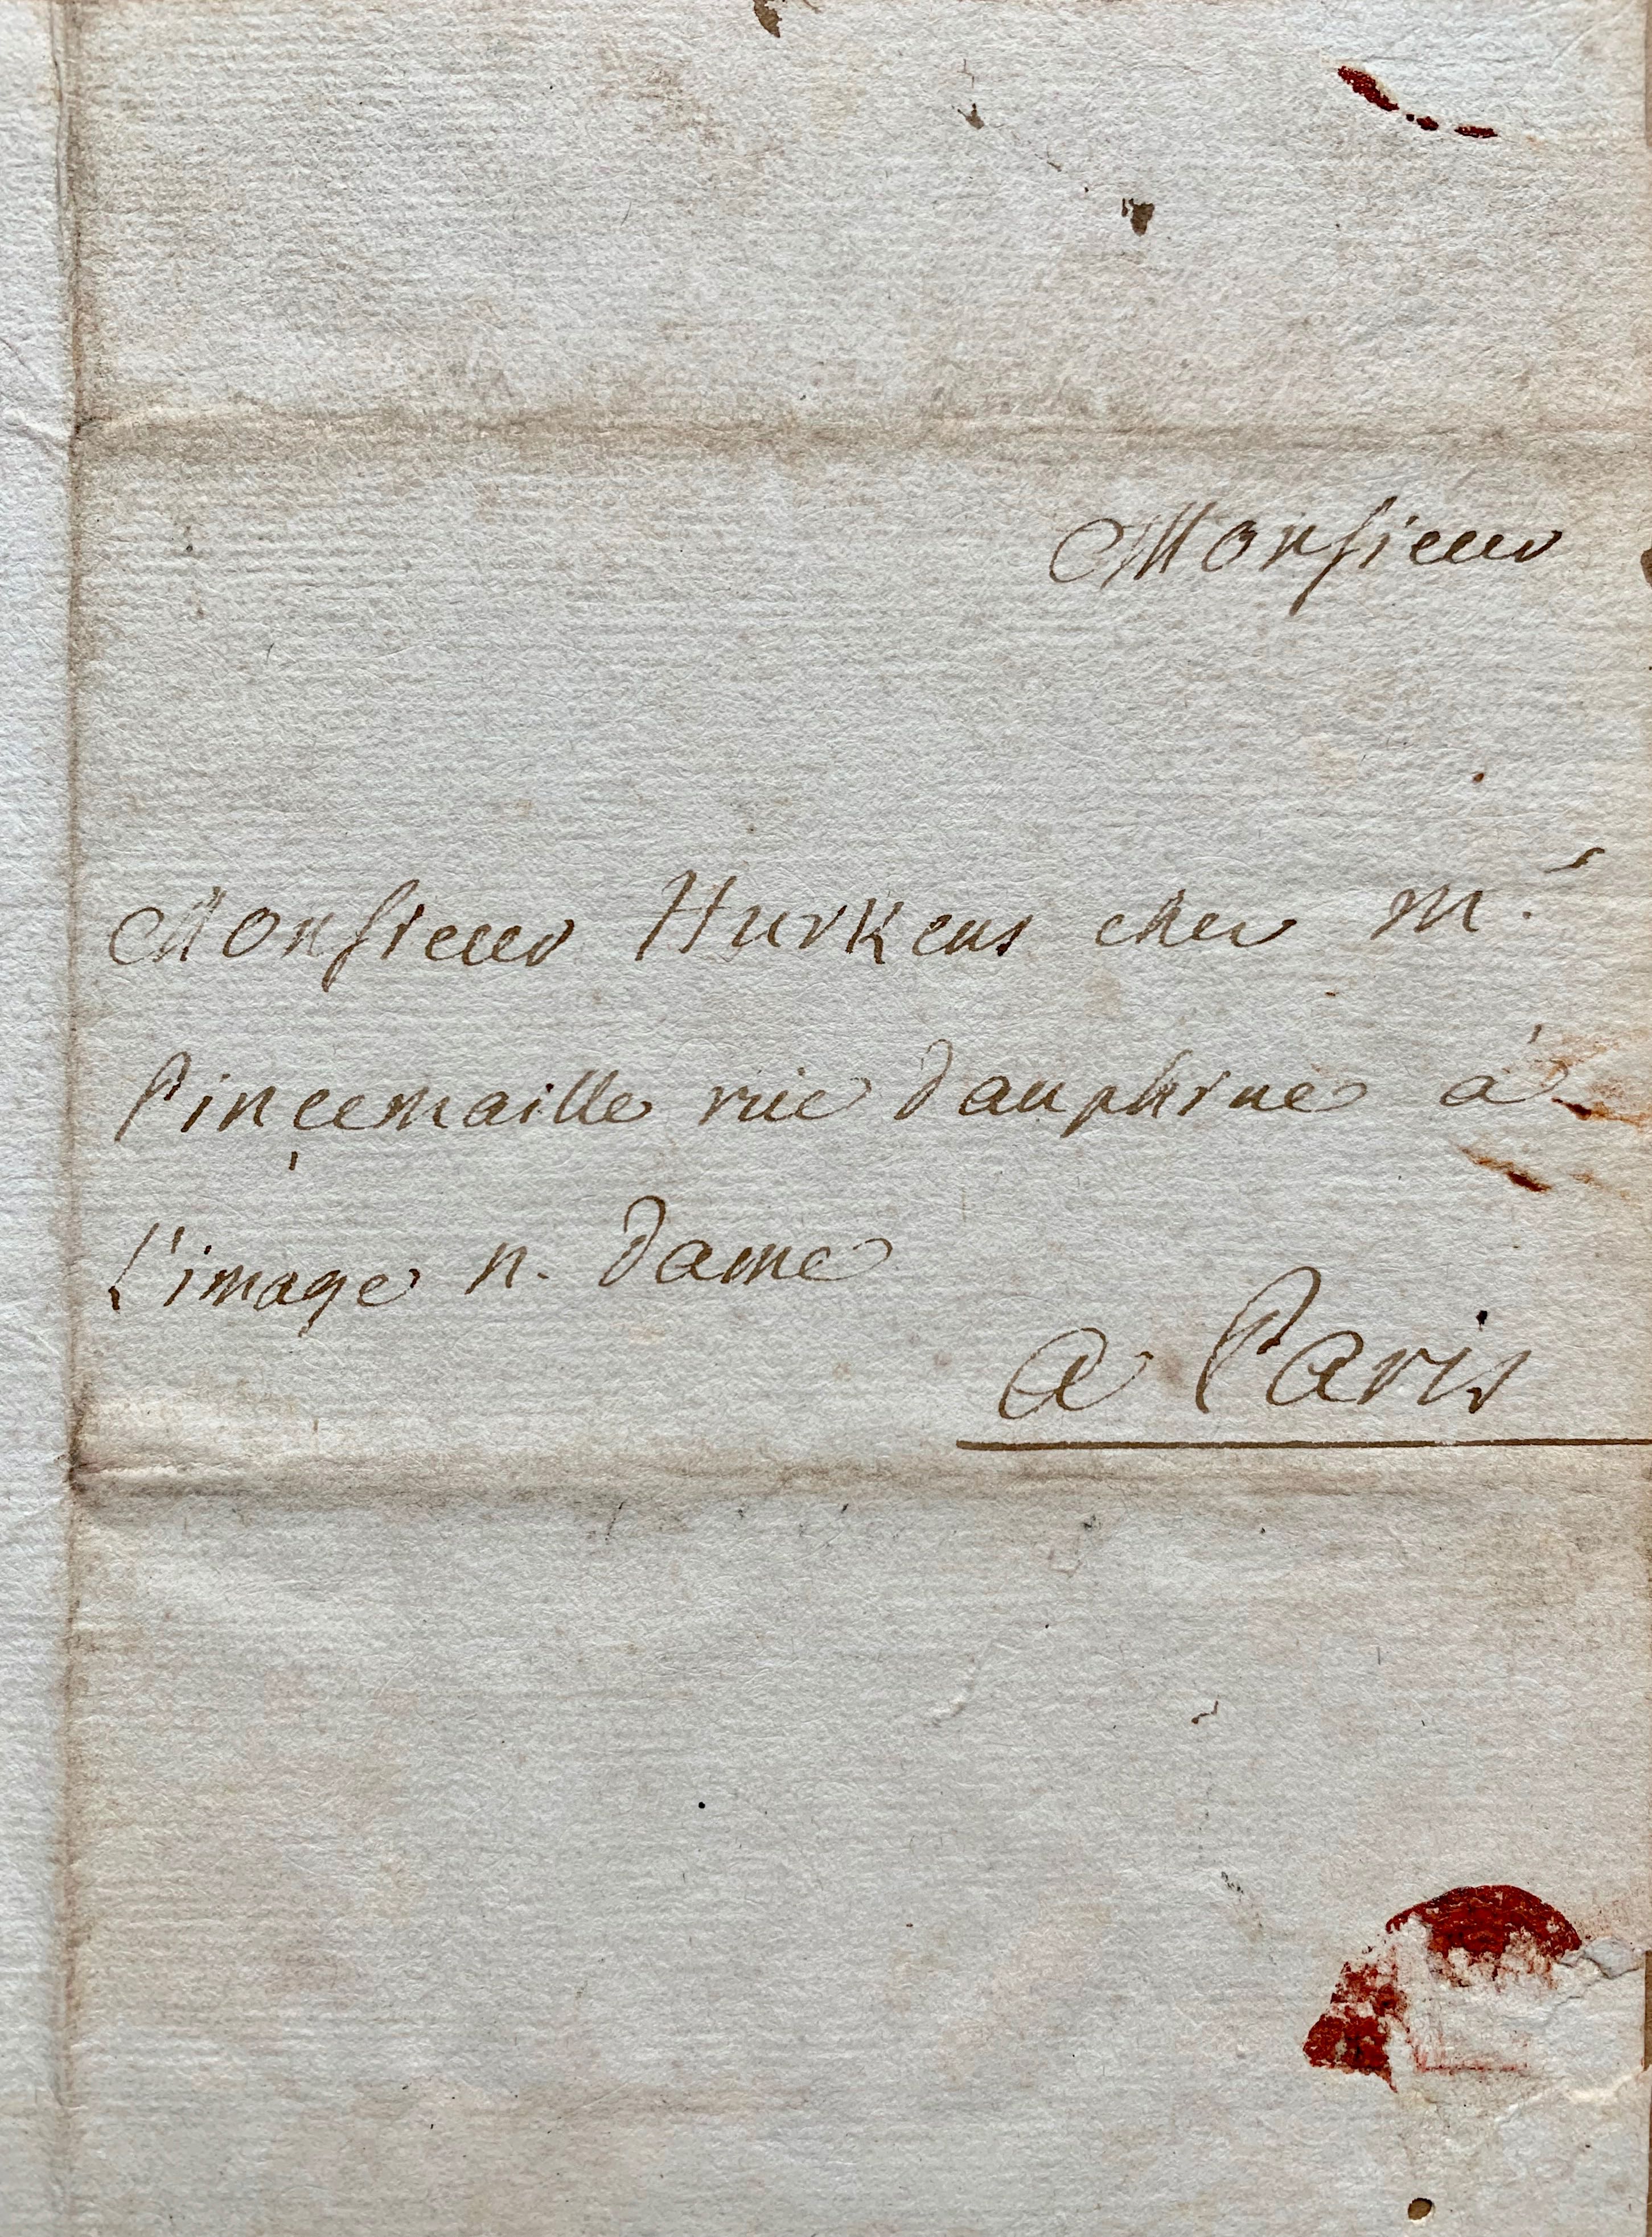 Monsieur
Monsieur Hurkens chez Mr.
Pincemaille rue dauphine à
L'image n. dame
a Paris